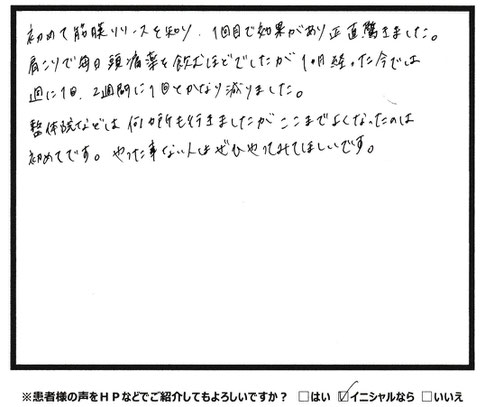 初めて筋膜リリースを知り、1回目で効果があり正直驚きました。
肩こりで毎日頭痛薬を飲むほどでしたが1ヵ月経った今では
週に1回、2週間に1回とかなり減りました。
整体院などは何か所も行きましたがここまでよくなったのは
初めてです。やった事ない人はぜひやってみてほしいです。
※患者様の声をHPなどでご紹介してもよろしいですか？ □はい ☑イニシャルなら □いいえ